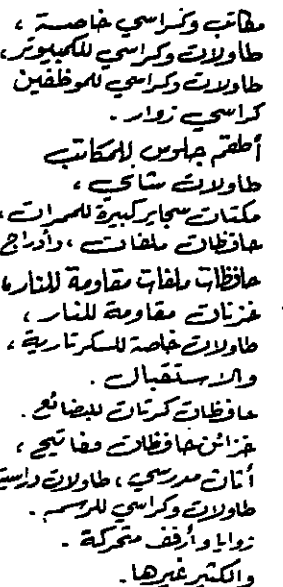 مكاتب وكراسي خاصة ،
طاولات وكراسي للكمبيوتر،
طاولات وكراسي للموظفين
كراسي زوار .
أطقم جلوس للمكاتب
طاولات شاي ،
مكتات سجاير كبيرة للممرات ،
حافظات ملفات ، وأدراج
حافظات ملفات مقاومة للنار،
خزنات مقاومة للنار ،
طاولات خاصة للسكرتارية ،
والاستقبال .
حافظات كرتات للبضائع .
خزائن حافظات مفاتيح ،
أثاث مدرسي ، طاولات دراسية
طاولات وكراسي للرسم .
زوايا وأرفف متحركة .
والكثير غيرها .